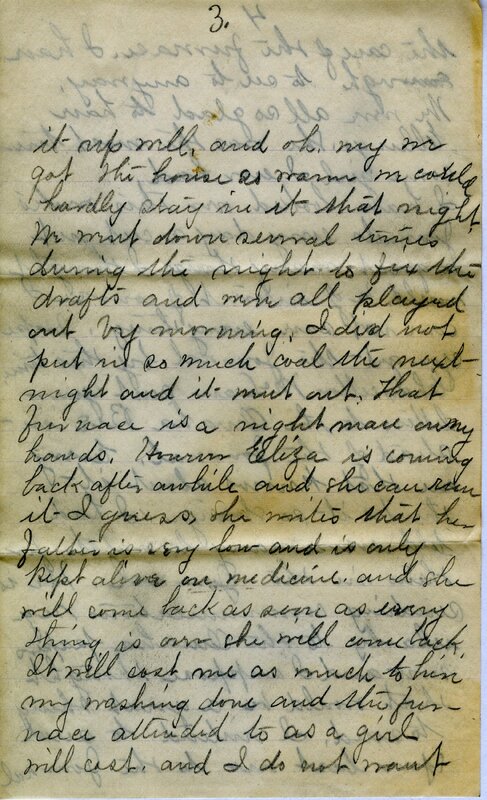 3.
it up well, and oh, my we
got the house so warm we could
hardly stay in it that night
We went down several times
during the night to fix the
drafts and were all played
out by morning, I did not
put in so much coal the next
night and it went out, That
furnace is a night mare on my
hands. However Eliza is coming
back after awhile and she can run
it I guess, she writes that her
father is very low and is only
kept alive on medicine. and she
will come back as soon as every
thing is over she will come back,
It will cost me as much to hire
my washing done and the fur-
nace attended to as a girl
will cost. and I do not want